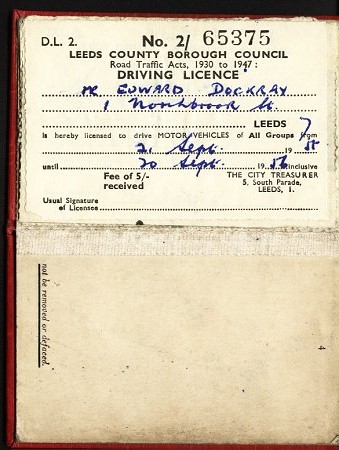 D.L. 2. No. 2/ 65375
LEEDS COUNTY BOROUGH COUNCIL
Road Traffic Acts, 1930 to 1947 :
DRIVING LICENCE
Mr EDWARD DOCKRAY
1 Northbrook St.
LEEDS 7
is hereby licensed to drive MOTOR VEHICLES of All Groups from
21 Sept. 19 55
until 20 Sept. 19 56 inclusive
Fee of 5/- received
THE CITY TREASURER
5, South Parade,
LEEDS, 1.
Usual Signature
of Licensee
not be removed or defaced.
4